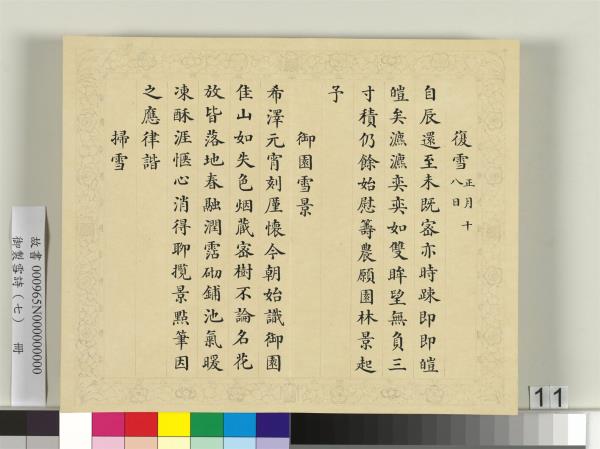 復雪 正月十
八日
自辰還至未既密亦時踈即即皚
皚矣瀌瀌奕奕如雙眸望無負三
寸積仍餘始慰籌農願園林景起
予
御園雪景
希澤元宵刻厪懷今朝始識御園
佳山如失色烟蔵密樹不論名花
放皆落地春融潤霑砌鋪池氣暖
凍酥涯愜心消得聊攬景點筆因
之應律諧
掃雪
故書 000965N000000000
御製雪詩（七） 冊
11